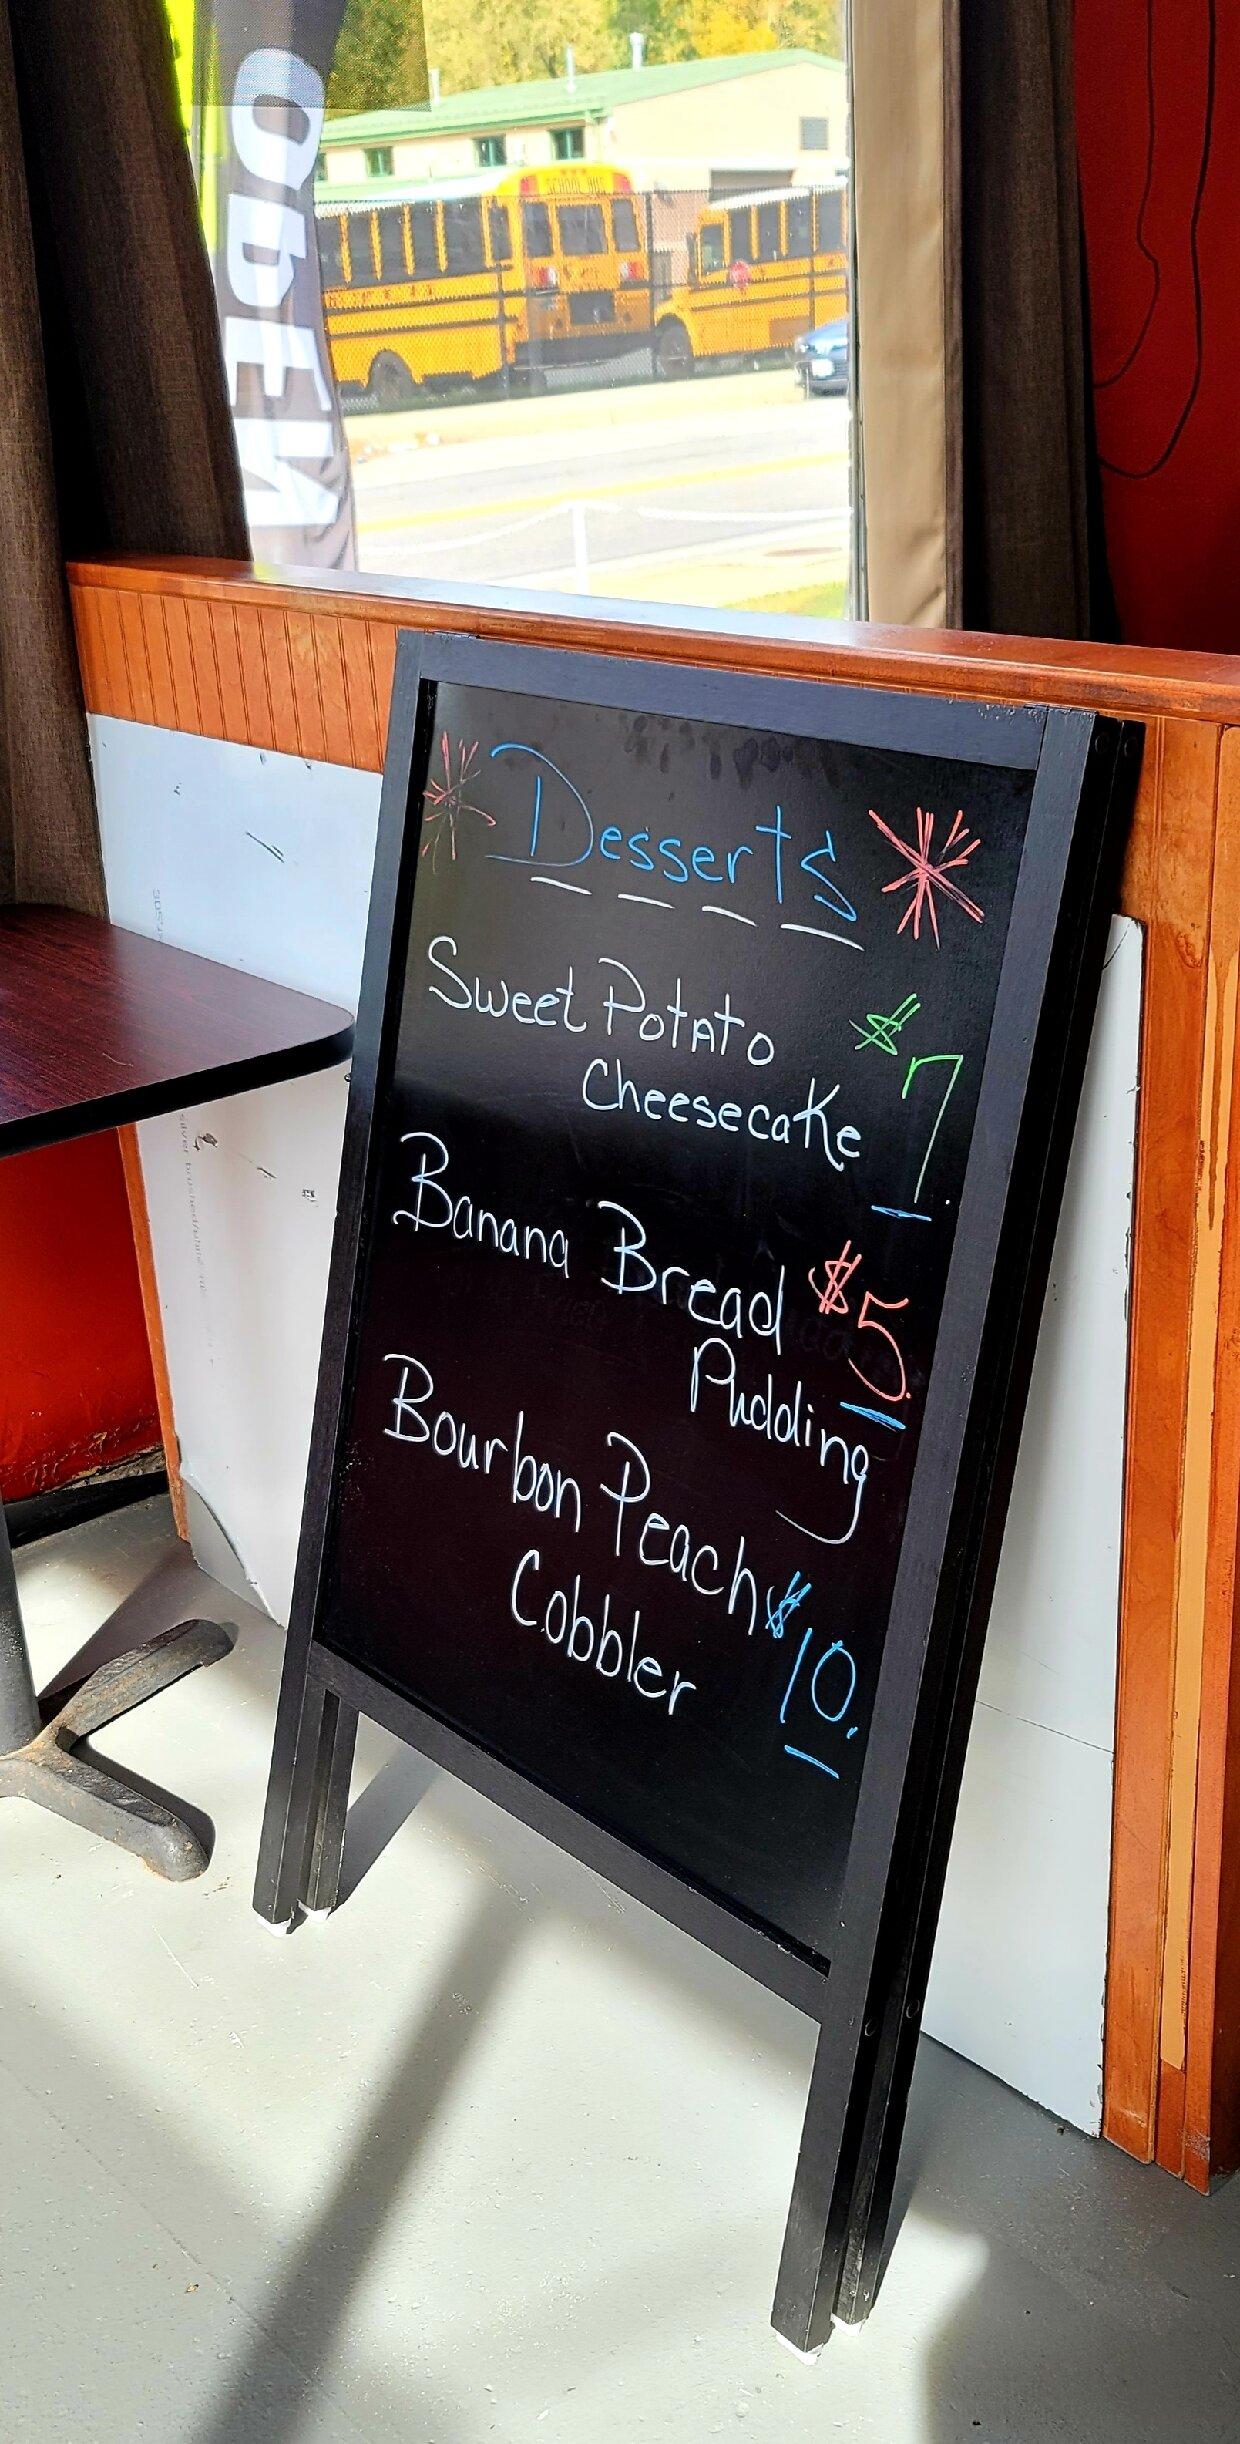 OPEN
Desserts
Sweet Potato $7.
Cheesecake
Banana Bread $5.
Pudding
Bourbon Peach $10.
Cobbler